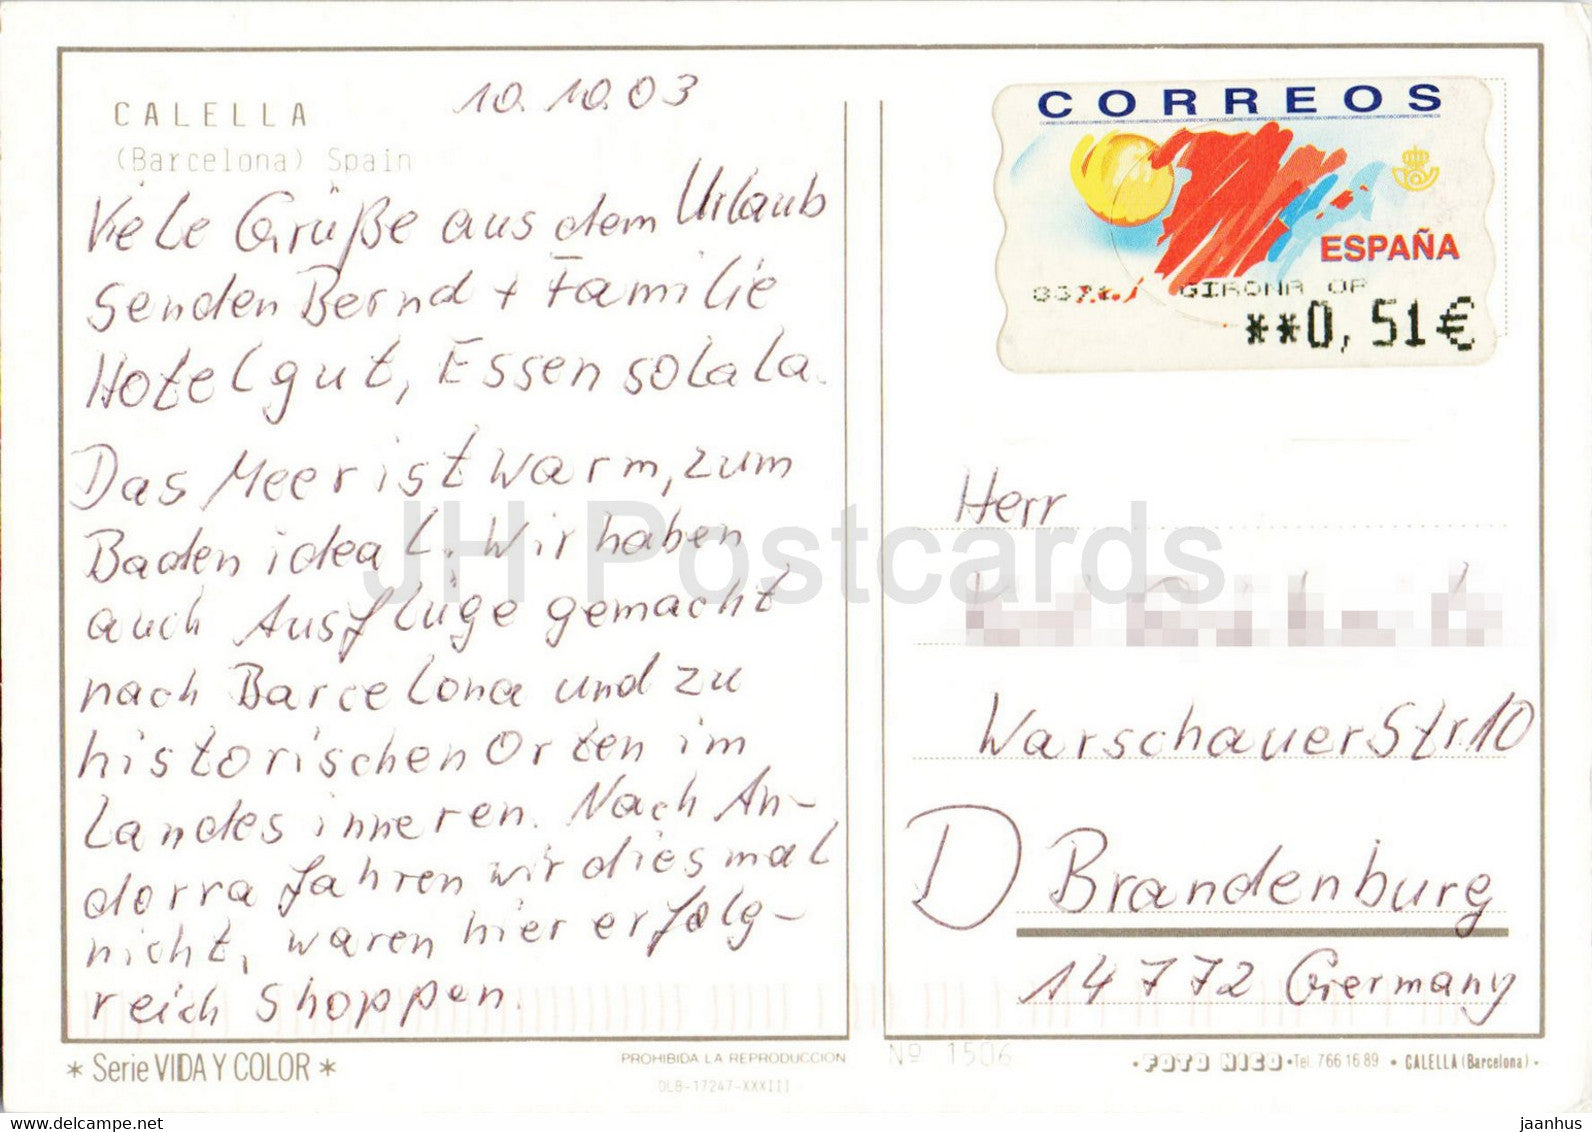 CALELLA
(Barcelona) Spain
10.10.03
Viele Grüße aus dem Urlaub
senden Bernd + Familie
Hotel gut, Essen so la la.
Das Meer ist warm, zum
Baden ideal. Wir haben
auch Ausflüge gemacht
nach Barcelona und zu
historischen Orten im
Landesinneren. Nach An-
dorra fahren wir diesmal
nicht, waren hier erfolg-
reich Shoppen.
CORREOS
ESPAÑA
GIRONA OP
**0,51€
Herr
Warschauer Str. 10
D Brandenburg
14772 Germany
JH Postcards
* Serie VIDA Y COLOR *
PROHIBIDA LA REPRODUCCION
DLB-17247-XXXIII
Nº 1506
· FOTO NICO · Tel. 766 16 89 · CALELLA (Barcelona) ·
delcampe.net
jaanhus